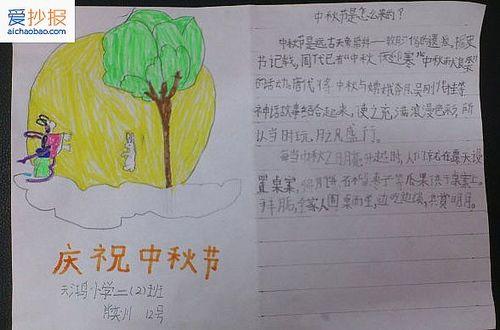 爱抄报
aichaobao.com
中秋节是怎么来的？
中秋节是远古天象崇拜——敬月习俗的遗痕。据史
书记载，周代已有“中秋夜迎寒”“中秋献良裘”
的活动。唐代 中秋与嫦娥奔月、吴刚伐桂等
神话故事结合起来，使之充满浪漫色彩，所
以当时玩月之风盛行。
每当中秋之月 升起时，人们 在露天设
置桌案，将月饼、石榴、枣子等瓜果供于桌案上。
拜月后，全家人围桌而坐，边吃边谈，共赏明月。
庆祝中秋节
天鸿小学二(2)班
12号